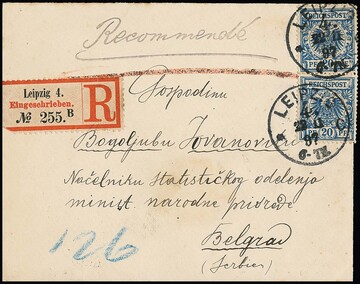 Recommandé
REICHSPOST
LEIPZIG
20 PF 20
REICHSPOST
LEIPZIG
PF 20 PF
6-7N.
Leipzig 4.
Eingeschrieben.
№ 255. B
R
Gospodinu
Bogoljubu Jovanoviću
Načelniku Statističkog odelenja
minist. narodne privrede
Belgrad
(Serbien)
126